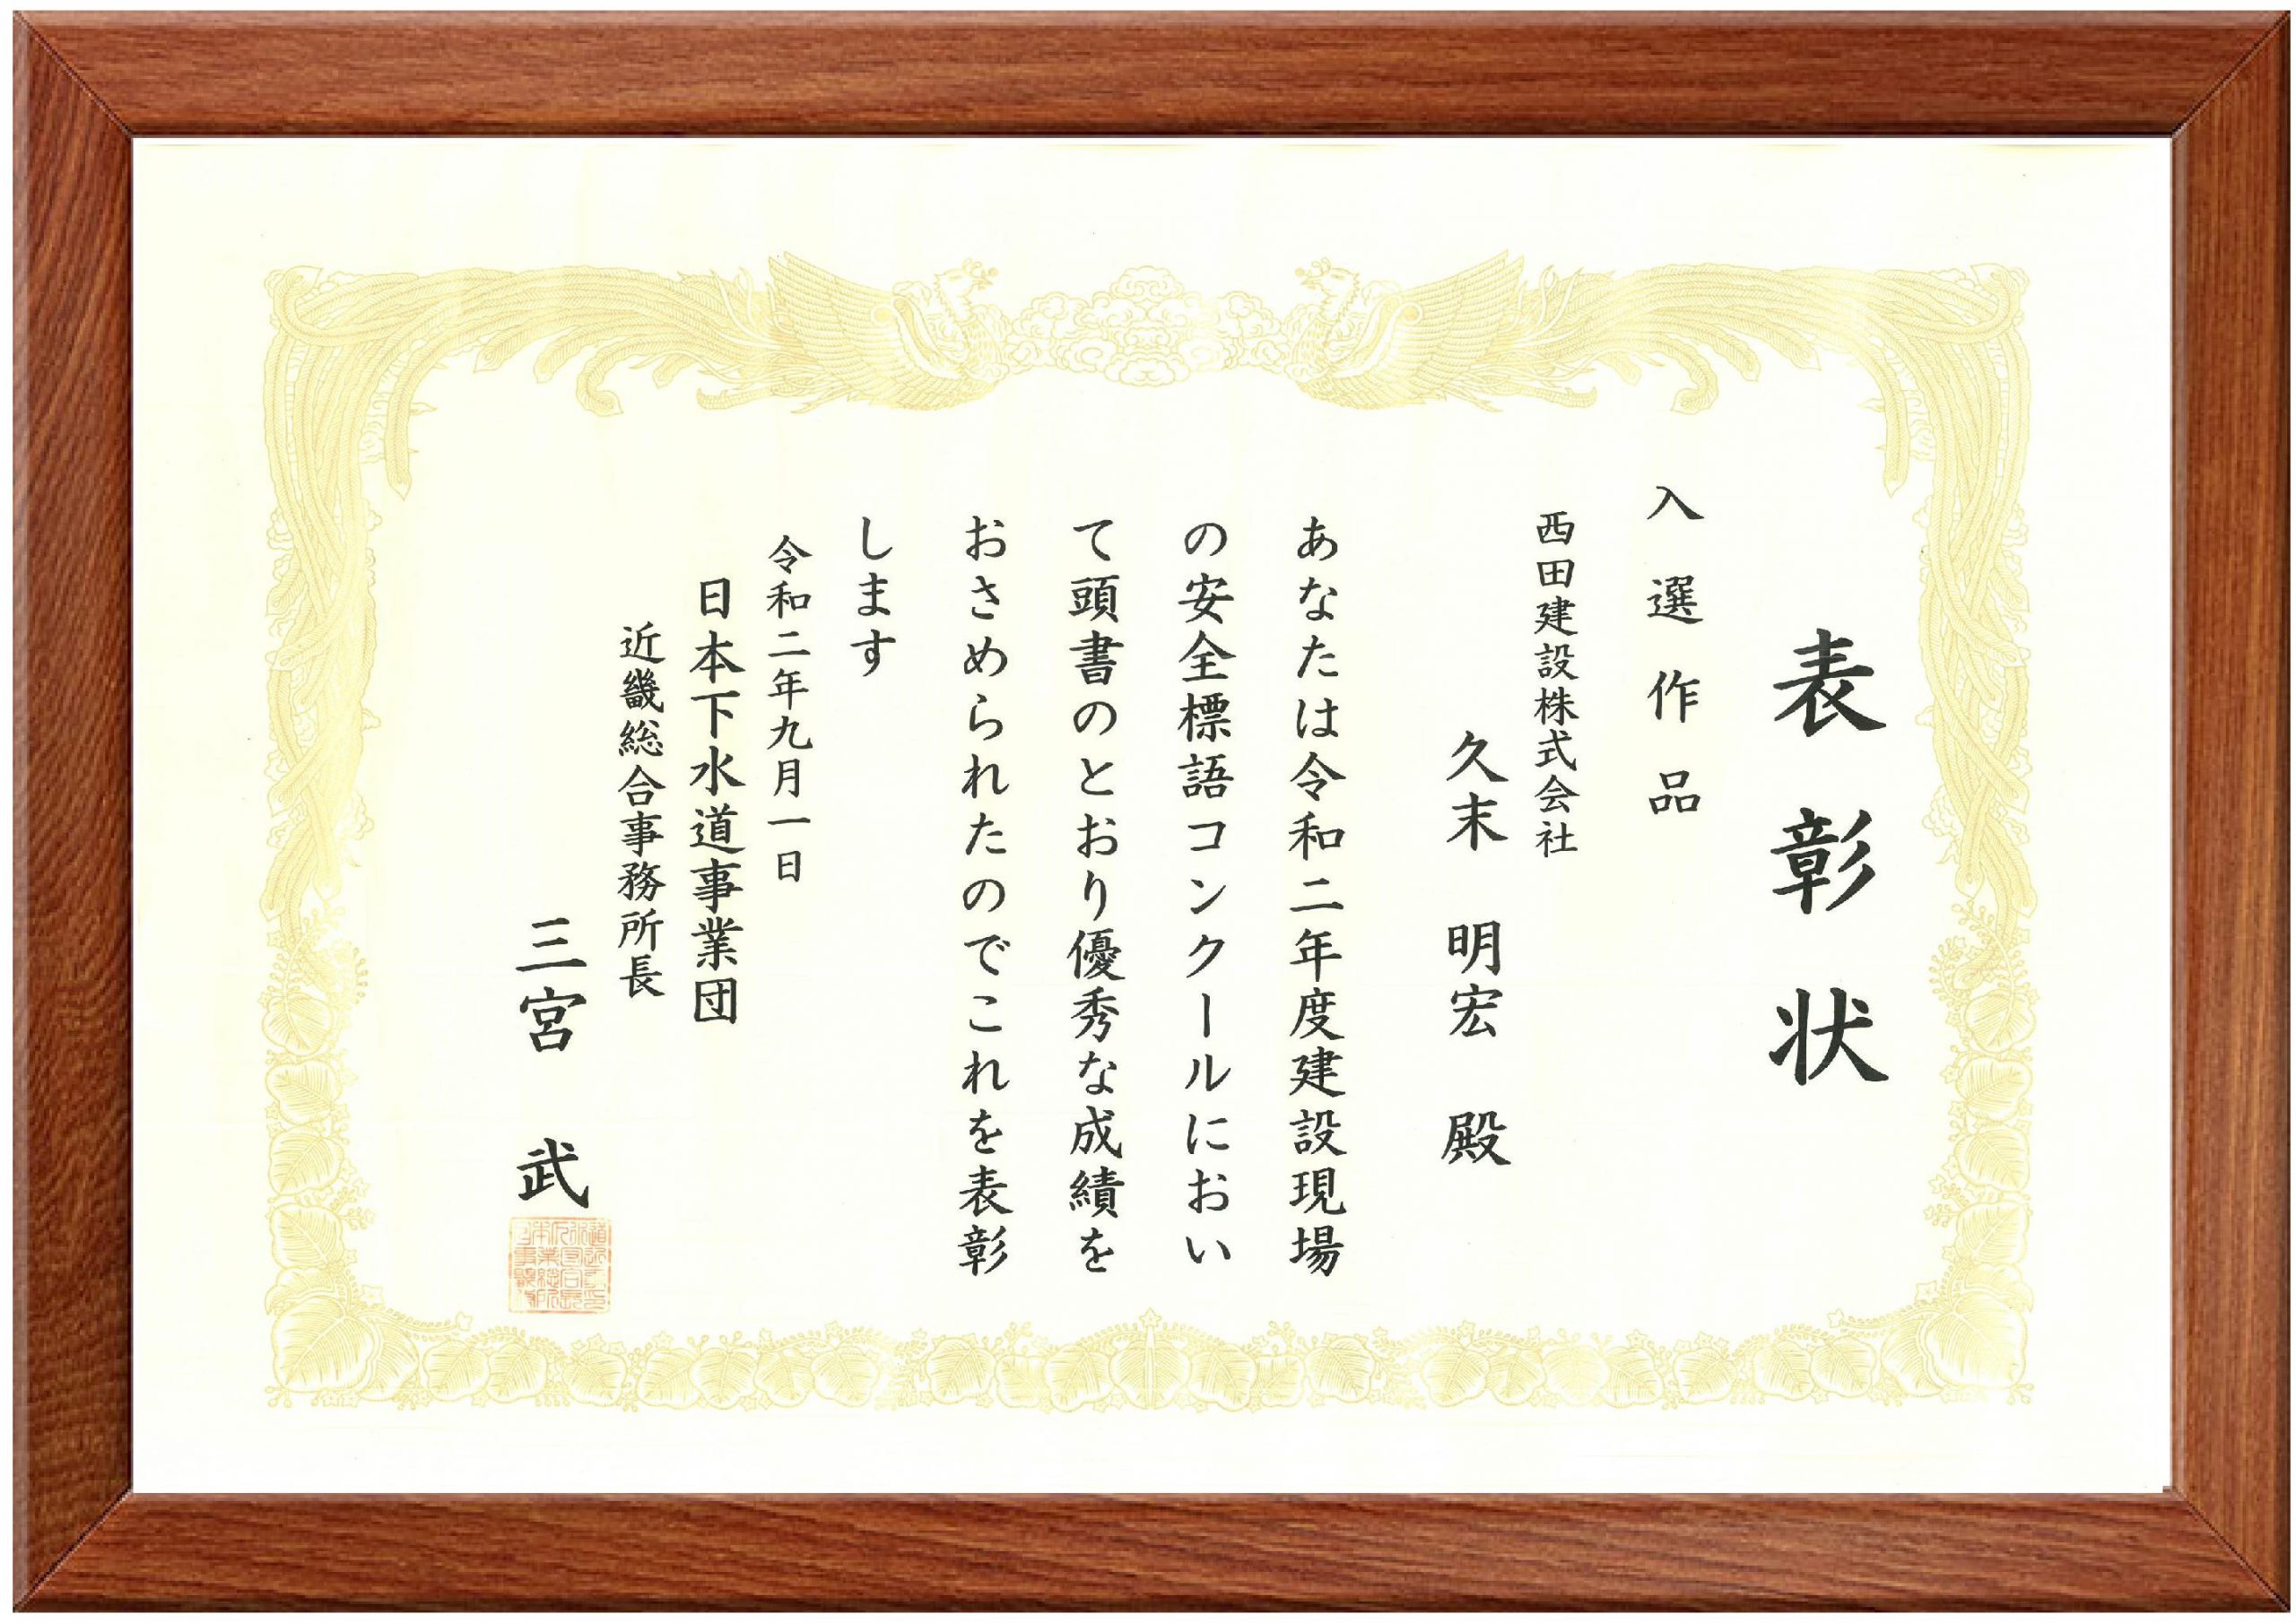 表彰状
入選作品
西田建設株式会社
久末 明宏 殿
あなたは令和二年度建設現場
の安全標語コンクールにおい
て頭書のとおり優秀な成績を
おさめられたのでこれを表彰
します
令和二年九月一日
日本下水道事業団
近畿総合事務所長
三宮 武